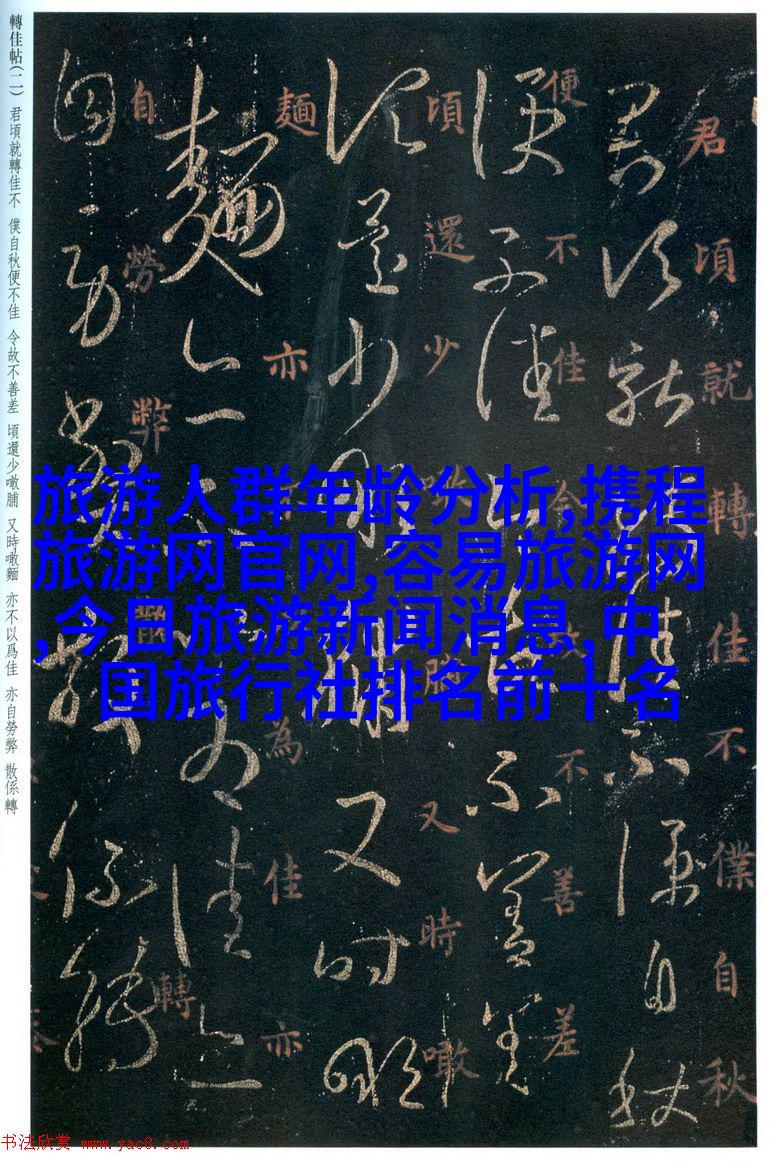 君頃就轉佳不僕自秋
便不佳令故不善差
頃還少噉脯又時噉
麵亦不以為佳亦
自勞弊散係轉
轉佳帖(二) 君頃就轉佳不 僕自秋便不佳 令故不善差 頃還少噉脯 又時噉麵 亦不以爲佳 亦自勞弊 散係轉
旅游人群年龄分析,携程
旅游网官网,容易旅游网
,今日旅游新闻消息,中
国旅行社排名前十名
书法欣赏 www.yac8.com